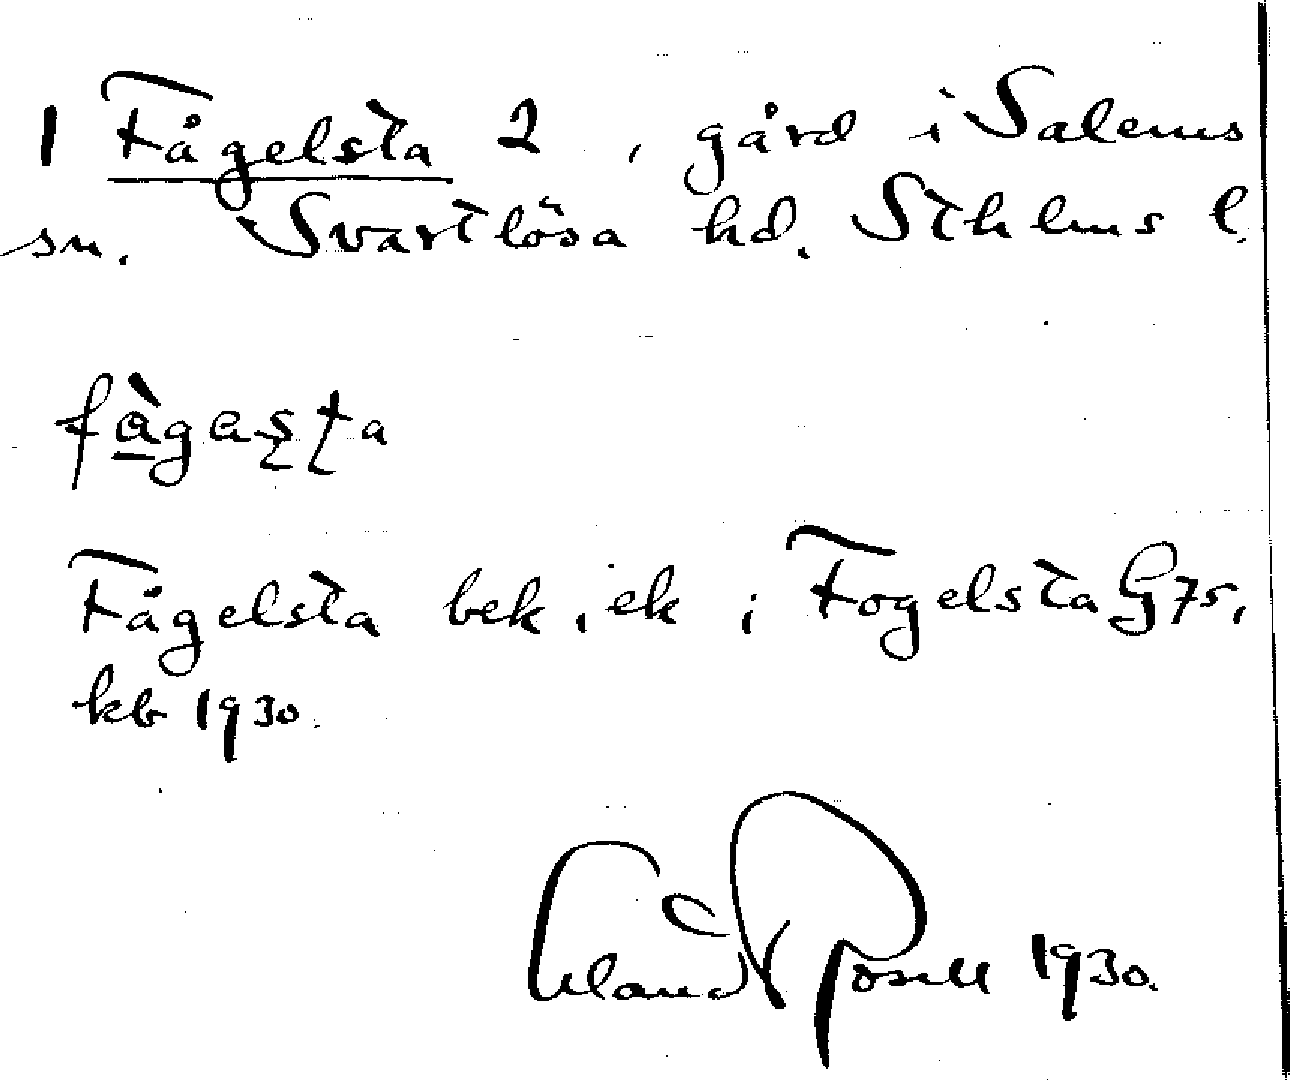 1 Fågelsta 2, gård i Salems
sn. Svartlösa hd. Sthlms l.
fàgasta
Fågelsta bek, ek i Fogelsta G75,
kb 1930.
Erland Rosell 1930.